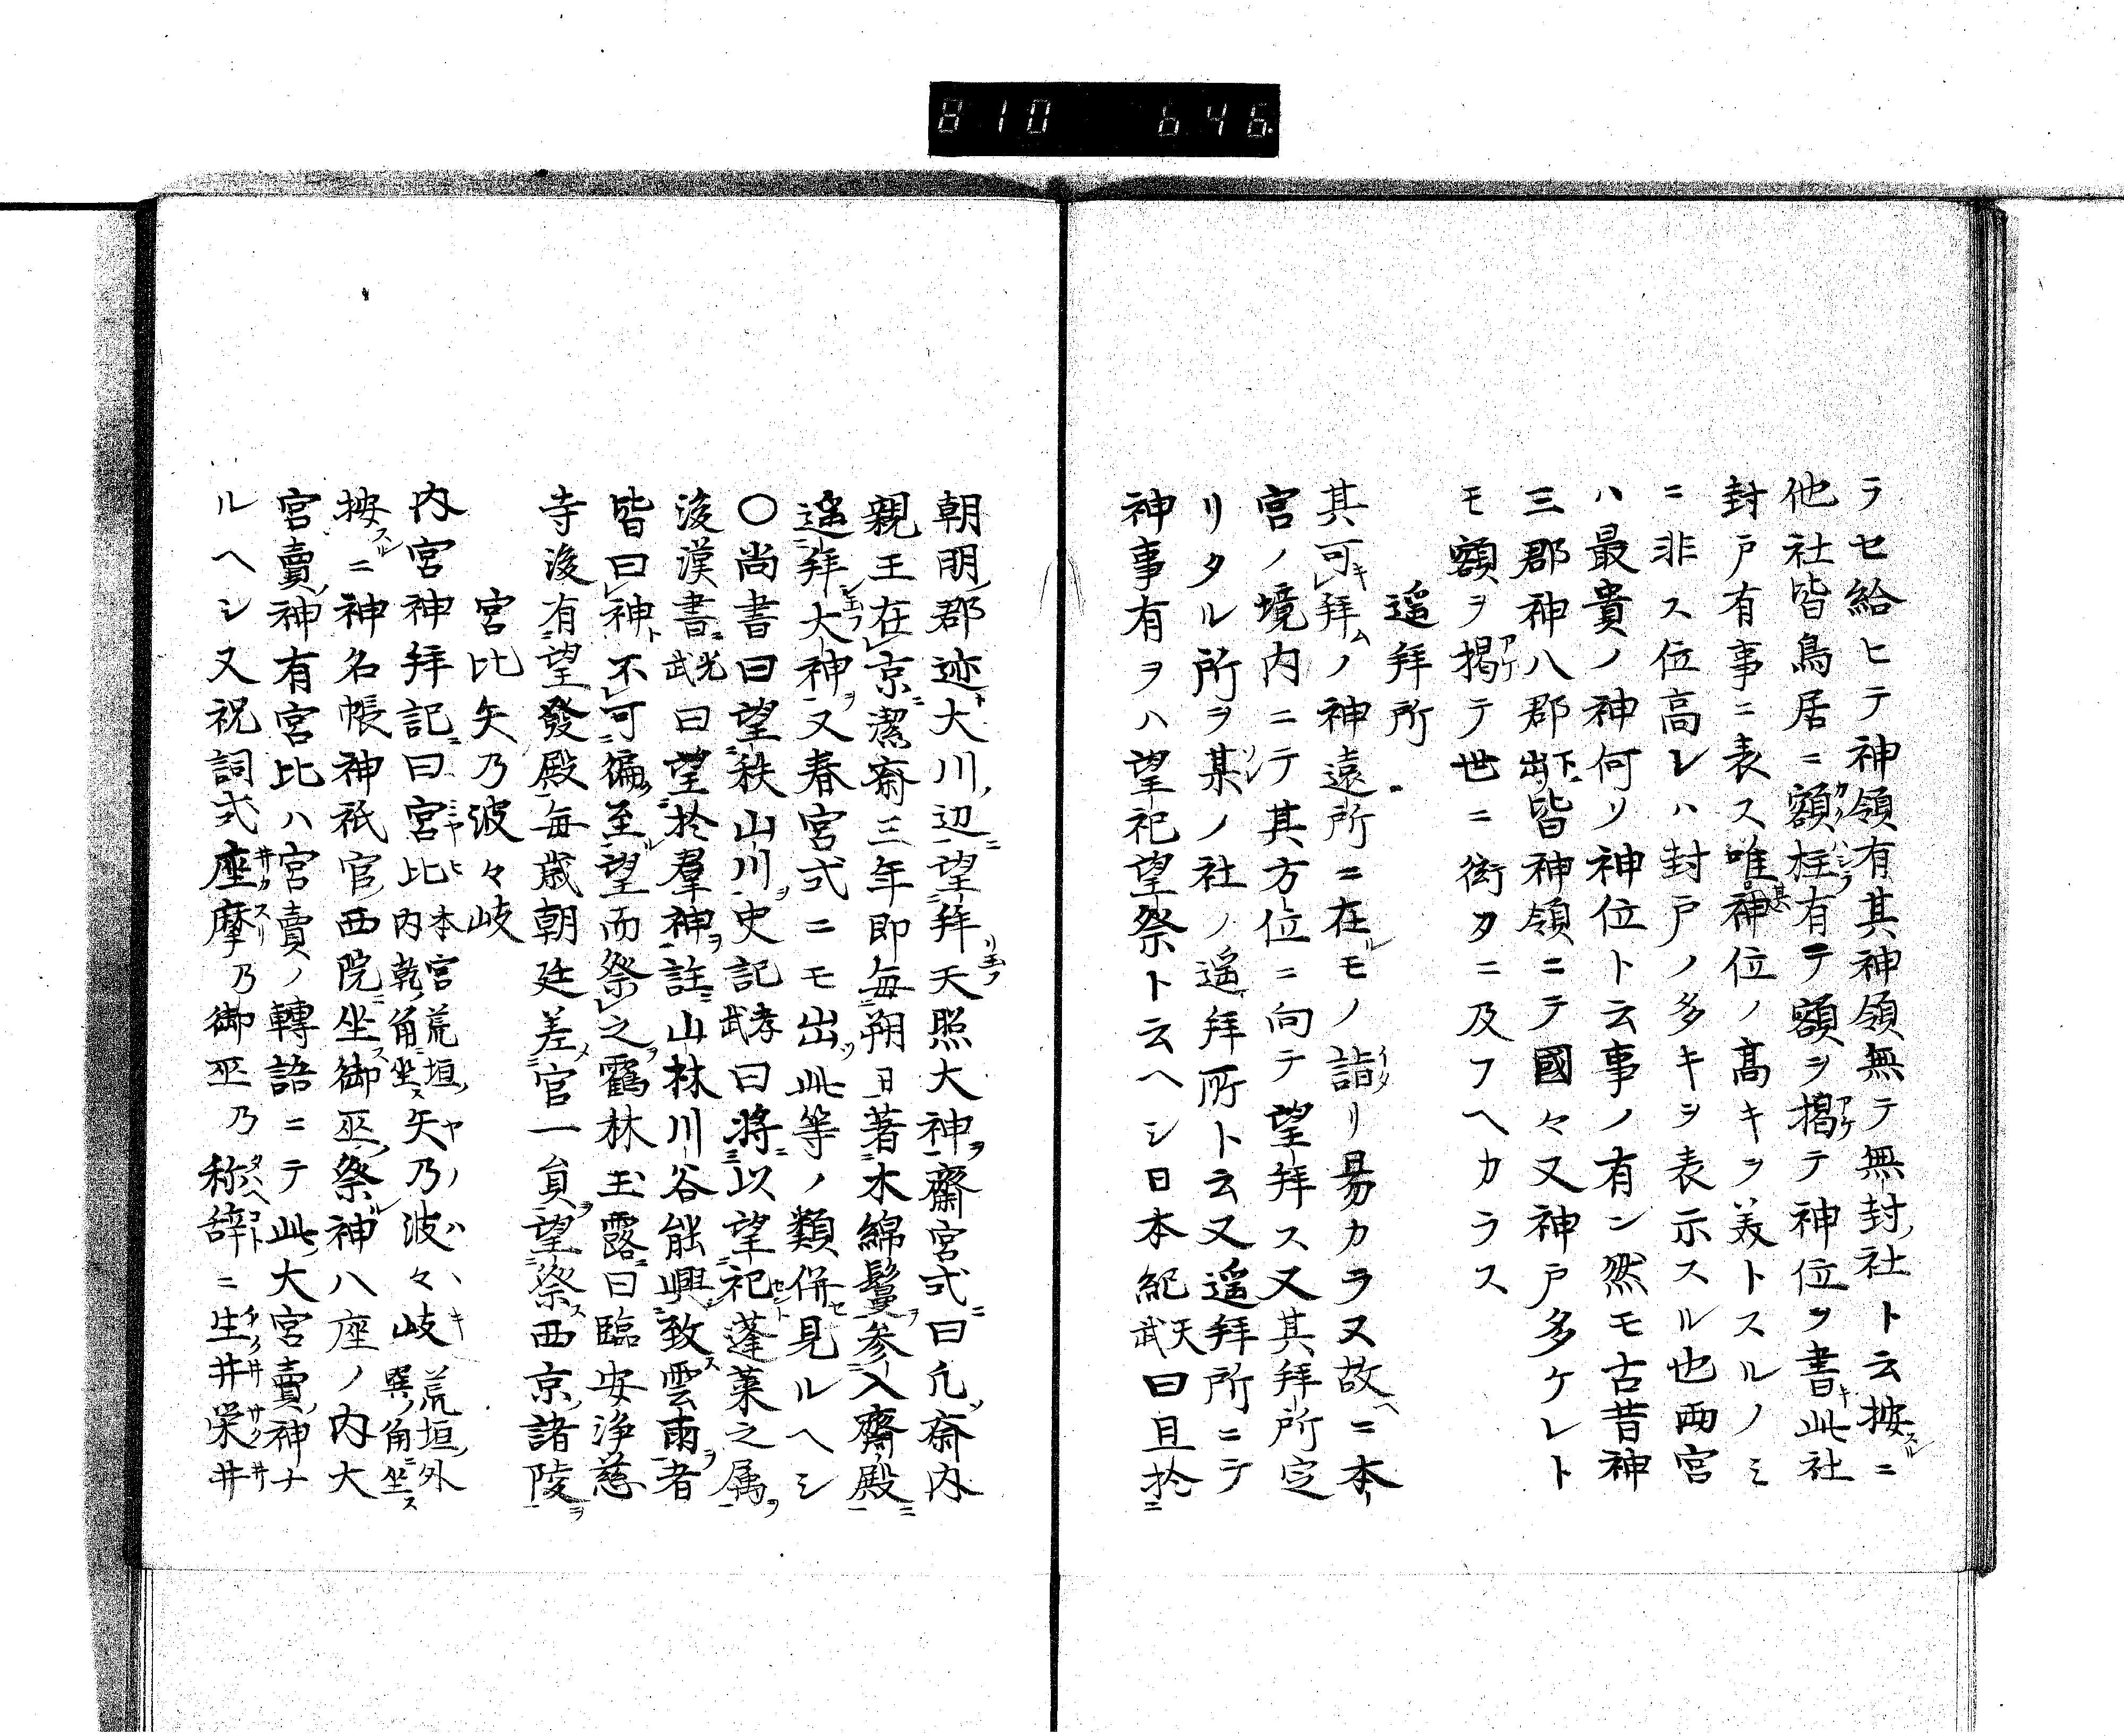 810 646
ラセ給ヒテ神領有其神領無テ無封社ト云按スルニ
他社皆鳥居ニ額柱有テ額ヲ揭テ神位ヲ書キ此社
封戸有事ニ表ス唯其神位ノ高キヲ美トスルノミ
ニ非ス位高レハ封戸ノ多キヲ表示スル也両宮
ハ最貴ノ神何ソ神位ト云事ノ有ン然モ古昔神
三郡神八郡出下皆神領ニテ國々又神戸多ケレト
モ額ヲ揭テ世ニ衒タニ及フヘカラス
遥拜所
其可キレ拜ムノ神遠所ニ在ルモノ詣リ易カラヌ故ヘニ本
宮ノ境内ニテ其方位ニ向テ望拜ス又其拜所定
リタル所ヲ某ノ社ノ遥拜所ト云又遥拜所ニテ
神事有ヲハ望祀望祭ト云ヘシ日本紀天武曰且於
朝明郡迹大川辺望拜天照大神齋宮式曰凡斎内
親王在京潔斎三年即毎朔日著木綿鬘参入齋殿
遥拜大神又春宮式ニモ出此等ノ類併セ見ルヘシ
〇尚書曰望秩山川史記孝武曰將以望祀蓬莱之属
後漢書光武曰望於羣神註山林川谷能興致雲雨者
皆曰神不可徧至望而祭之鶴林玉露曰臨安浄慈
寺後有望發殿毎歳朝廷差官一員望祭西京諸陵
宮比矢乃波々岐
内宮神拜記曰宮比本宮荒垣内乾角坐矢乃波々岐荒垣外巽角坐
按スルニ神名帳神祇官西院坐御巫祭神八座ノ内大
宮賣神有宮比ハ宮賣ノ轉語ニテ此大宮賣神ナ
ルヘシ又祝詞式座摩乃御巫乃称辞ニ生井栄井